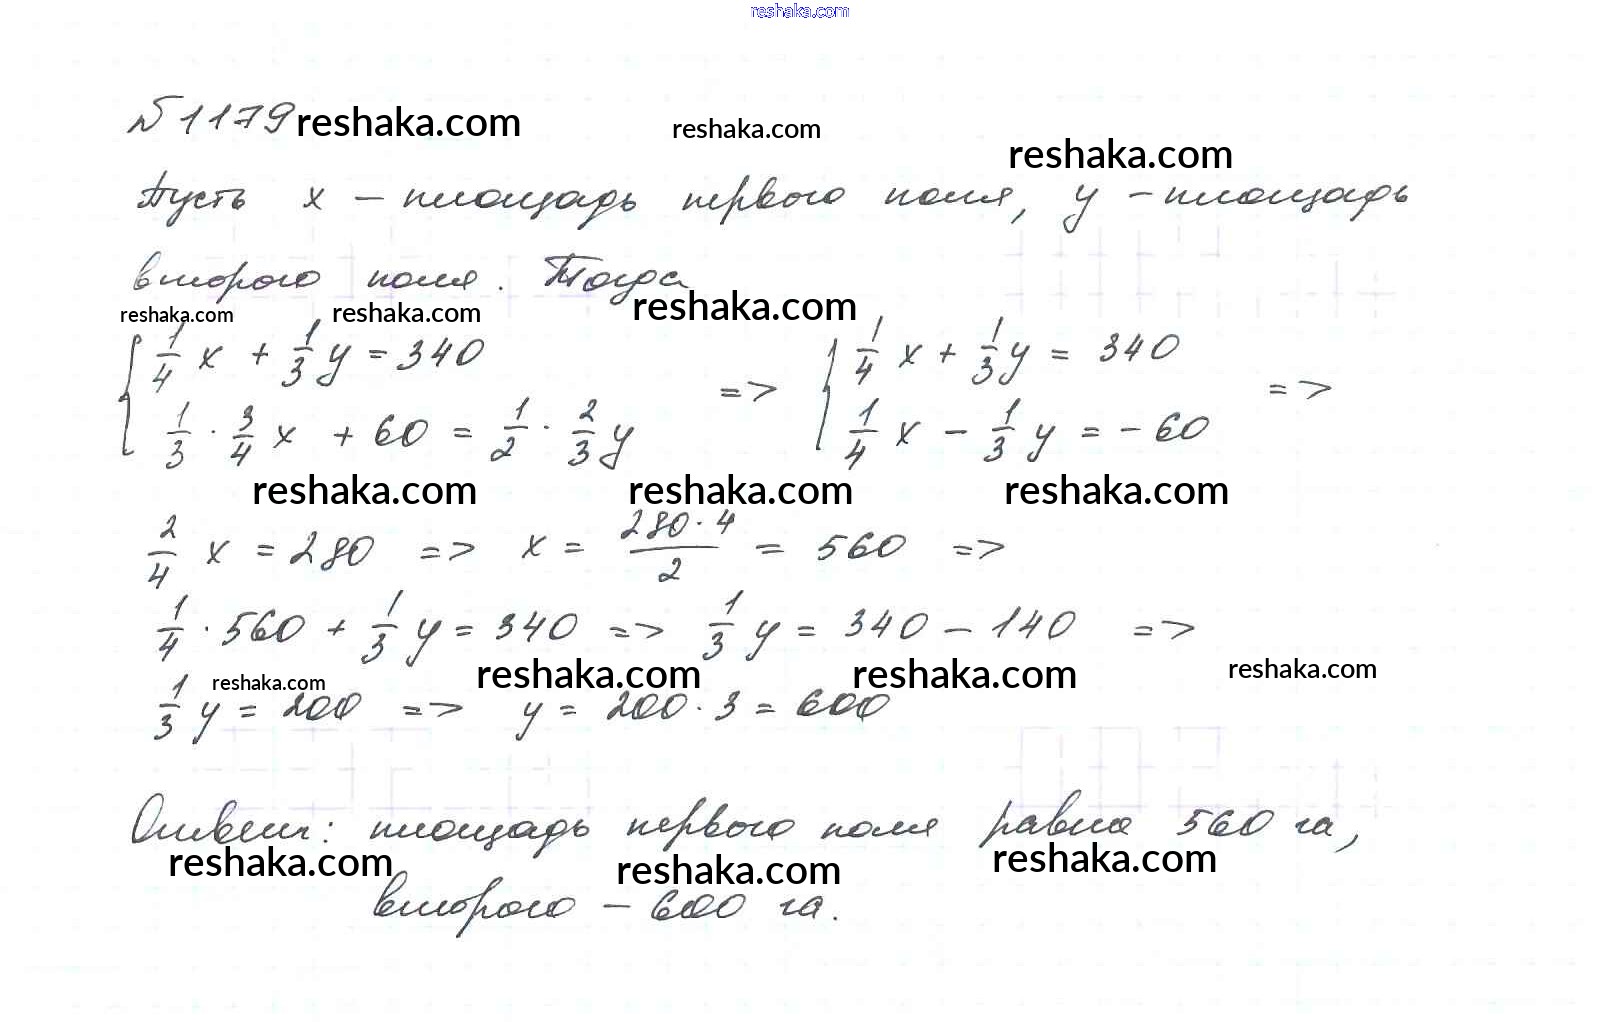 reshaka.com
№1179 reshaka.com reshaka.com reshaka.com
Пусть x – площадь первого поля, y – площадь
второго поля. Тогда
reshaka.com reshaka.com reshaka.com
{ 1/4 x + 1/3 y = 340 => { 1/4 x + 1/3 y = 340 =>
1/3 · 3/4 x + 60 = 1/2 · 2/3 y 1/4 x – 1/3 y = – 60
reshaka.com reshaka.com reshaka.com
2/4 x = 280 => x = 280·4/2 = 560 =>
1/4 · 560 + 1/3 y = 340 => 1/3 y = 340 – 140 =>
reshaka.com reshaka.com reshaka.com reshaka.com
1/3 y = 200 => y = 200·3 = 600
Ответ: площадь первого поля равна 560 га,
reshaka.com reshaka.com reshaka.com
второго – 600 га.